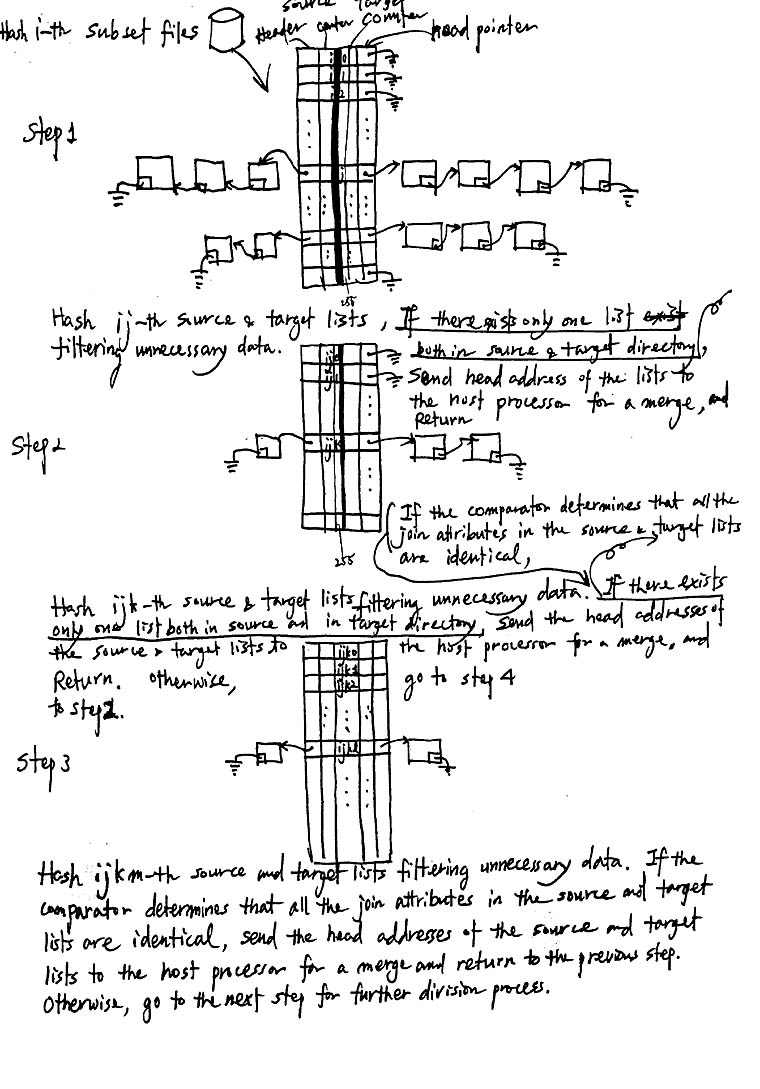 Source Target
Hash i-th subset files Header counter counter head pointer
0
1
2
Step 1
i
255
Hash ij-th source & target lists, If there exists only one list
filtering unnecessary data. both in source & target directory,
ij0
ij1
Send head address of the lists to
the host processor for a merge, and
Return
Step 2
ijk
If the comparator determines that all the
join attributes in the source & target lists
are identical,
255
Hash ijk-th source & target lists filtering unnecessary data. If there exists
only one list both in source and in target directory, send the head addresses of
the source & target lists to the host processor for a merge, and
Return. otherwise, go to step 4
to step 2.
ijk0
ijk1
ijk2
Step 3
Hash ijkm-th source and target lists filtering unnecessary data. If the
comparator determines that all the join attributes in the source and target
lists are identical, send the head addresses of the source and target
lists to the host processor for a merge and return to the previous step.
Otherwise, go to the next step for further division process.